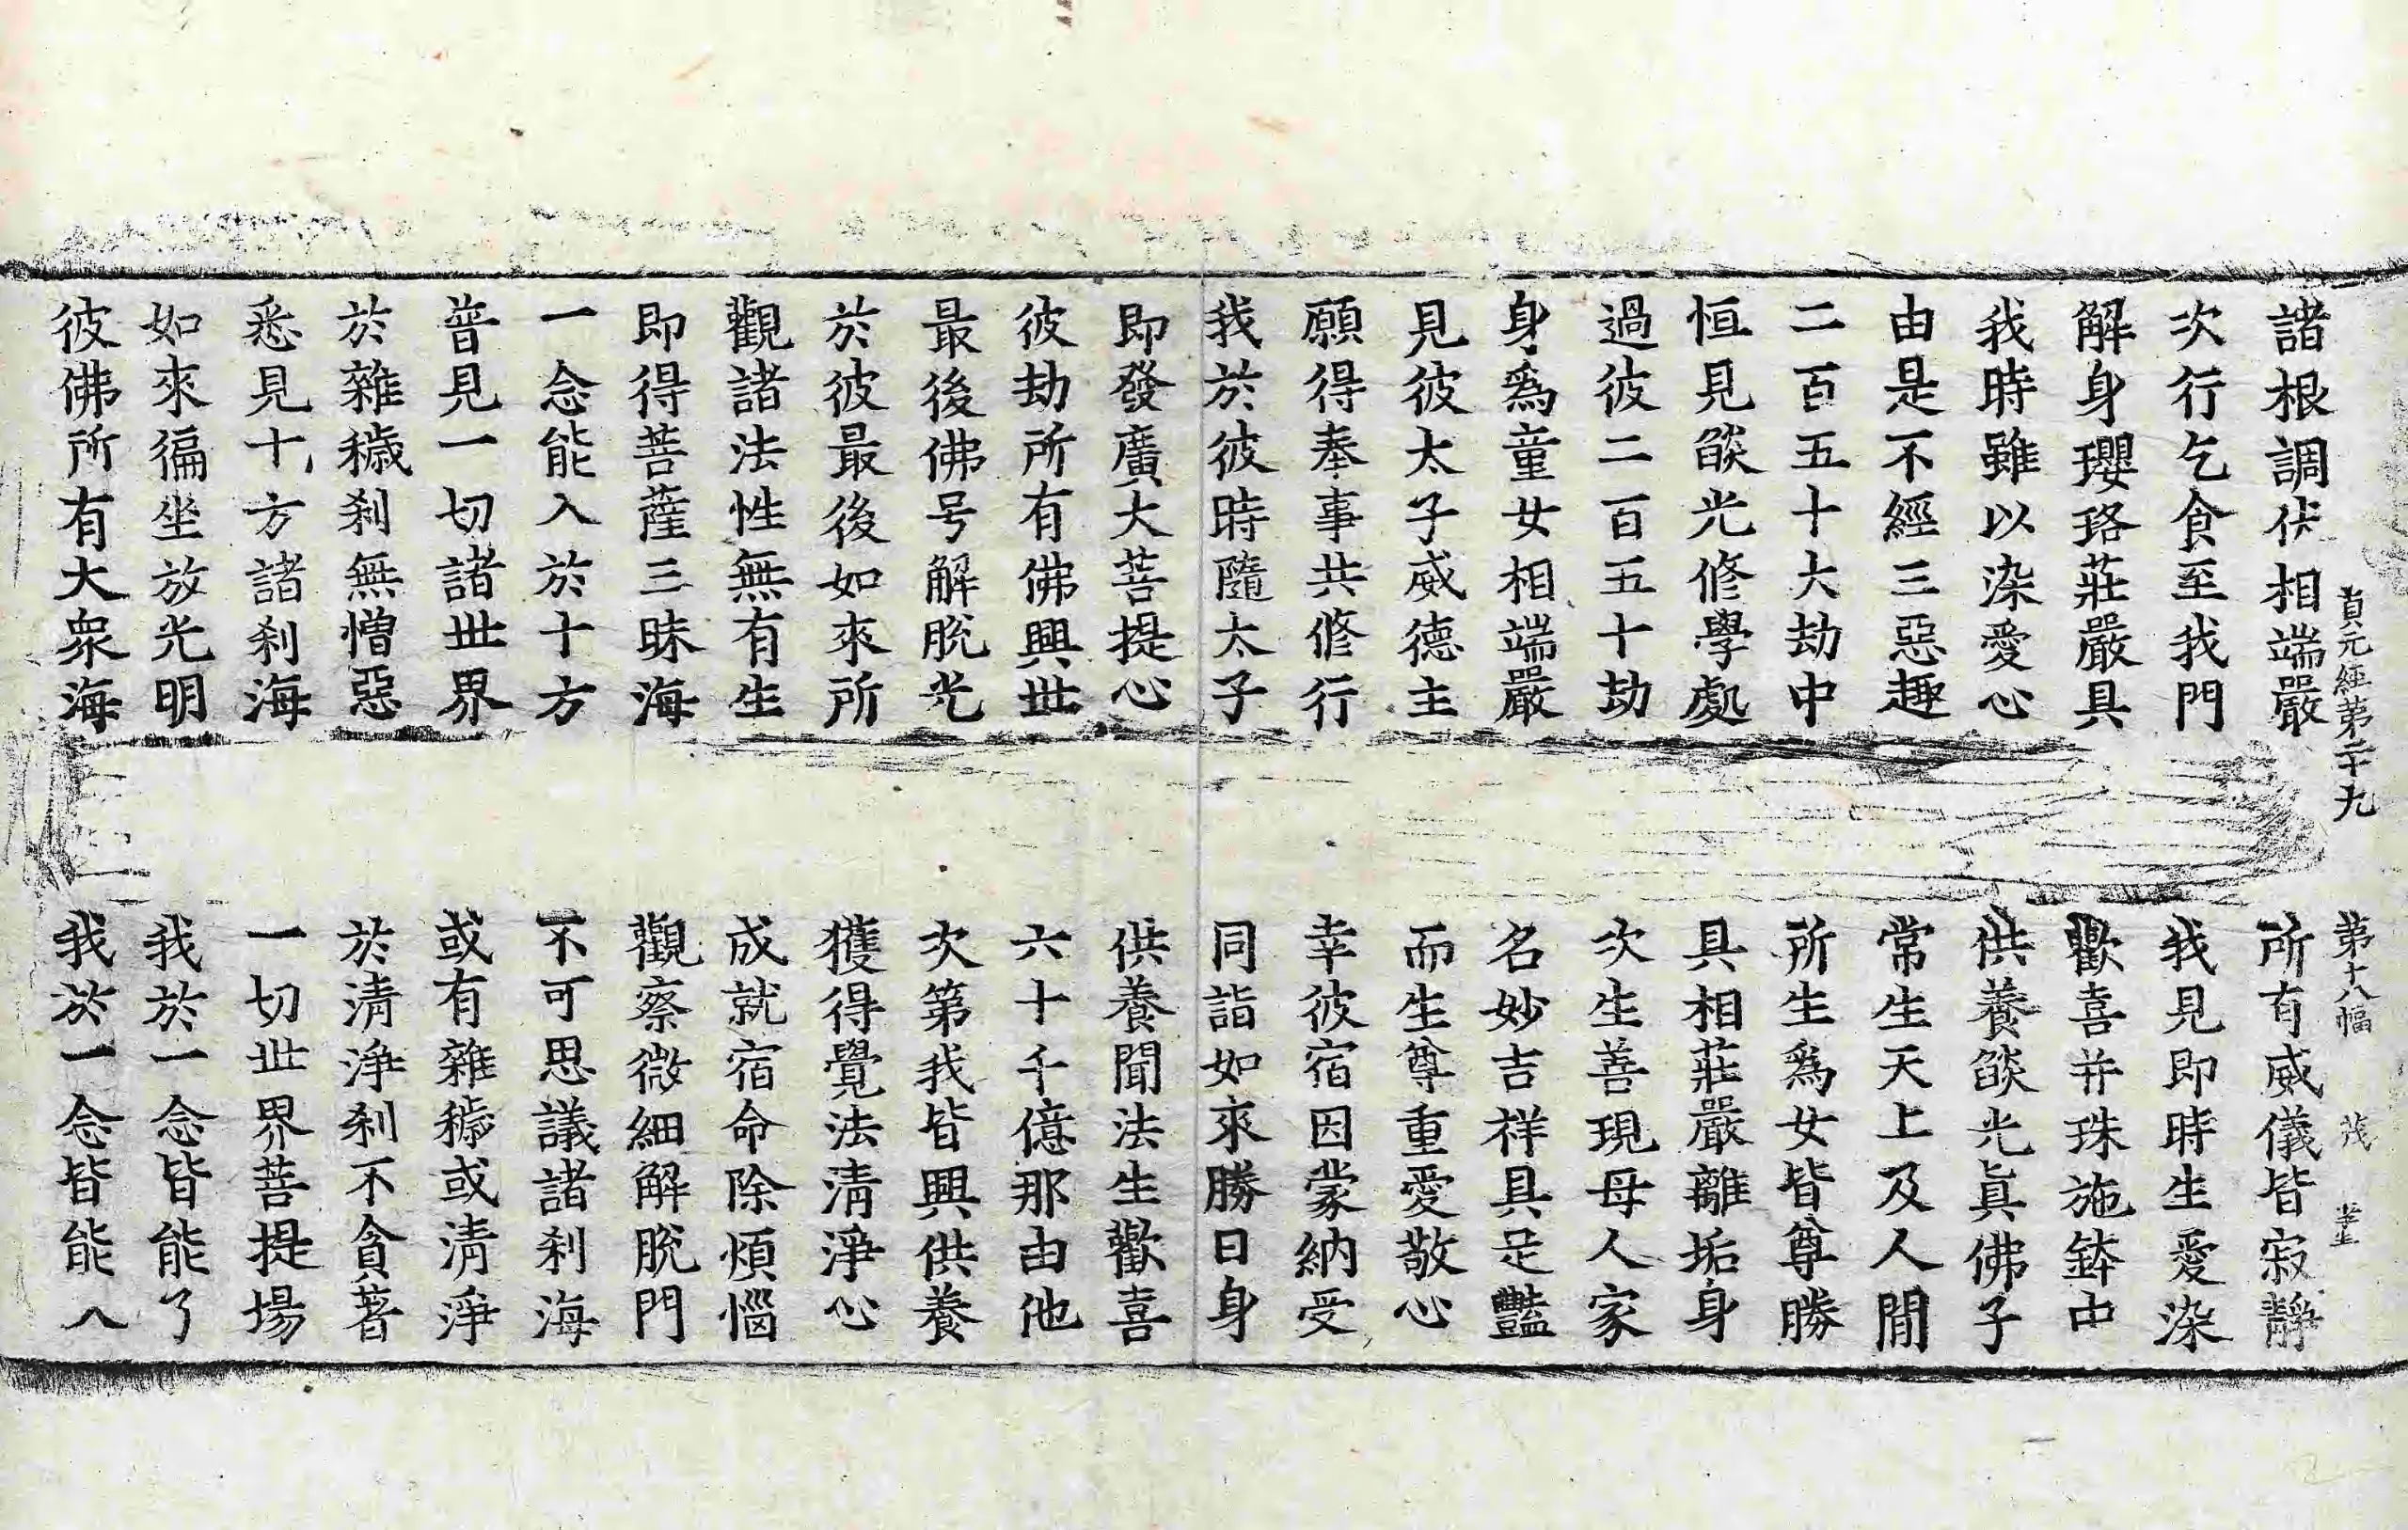 貞元經第二十九 第十八幅 茂
諸根調伏相端嚴 所有威儀皆寂靜
次行乞食至我門 我見即時生愛染
解身瓔珞莊嚴具 歡喜并珠施鉢中
我時雖以染愛心 供養燄光眞佛子
由是不經三惡趣 常生天上及人閒
二百五十大劫中 所生爲女皆尊勝
恒見燄光修學處 具相莊嚴離垢身
過彼二百五十劫 次生善現母人家
身爲童女相端嚴 名妙吉祥具足豔
見彼太子威德主 而生尊重愛敬心
願得奉事共修行 幸彼宿因蒙納受
我於彼時隨太子 同詣如來勝日身
即發廣大菩提心 供養聞法生歡喜
彼劫所有佛興世 六十千億那由他
最後佛号解脫光 次第我皆興供養
於彼最後如來所 獲得覺法淸淨心
觀諸法性無有生 成就宿命除煩惱
即得菩薩三昧海 觀察微細解脫門
一念能入於十方 不可思議諸刹海
普見一切諸世界 或有雜穢或淸淨
於雜穢刹無憎惡 於淸淨刹不貪著
悉見十方諸刹海 一切世界菩提場
如來徧坐放光明 我於一念皆能了
彼佛所有大衆海 我於一念皆能入